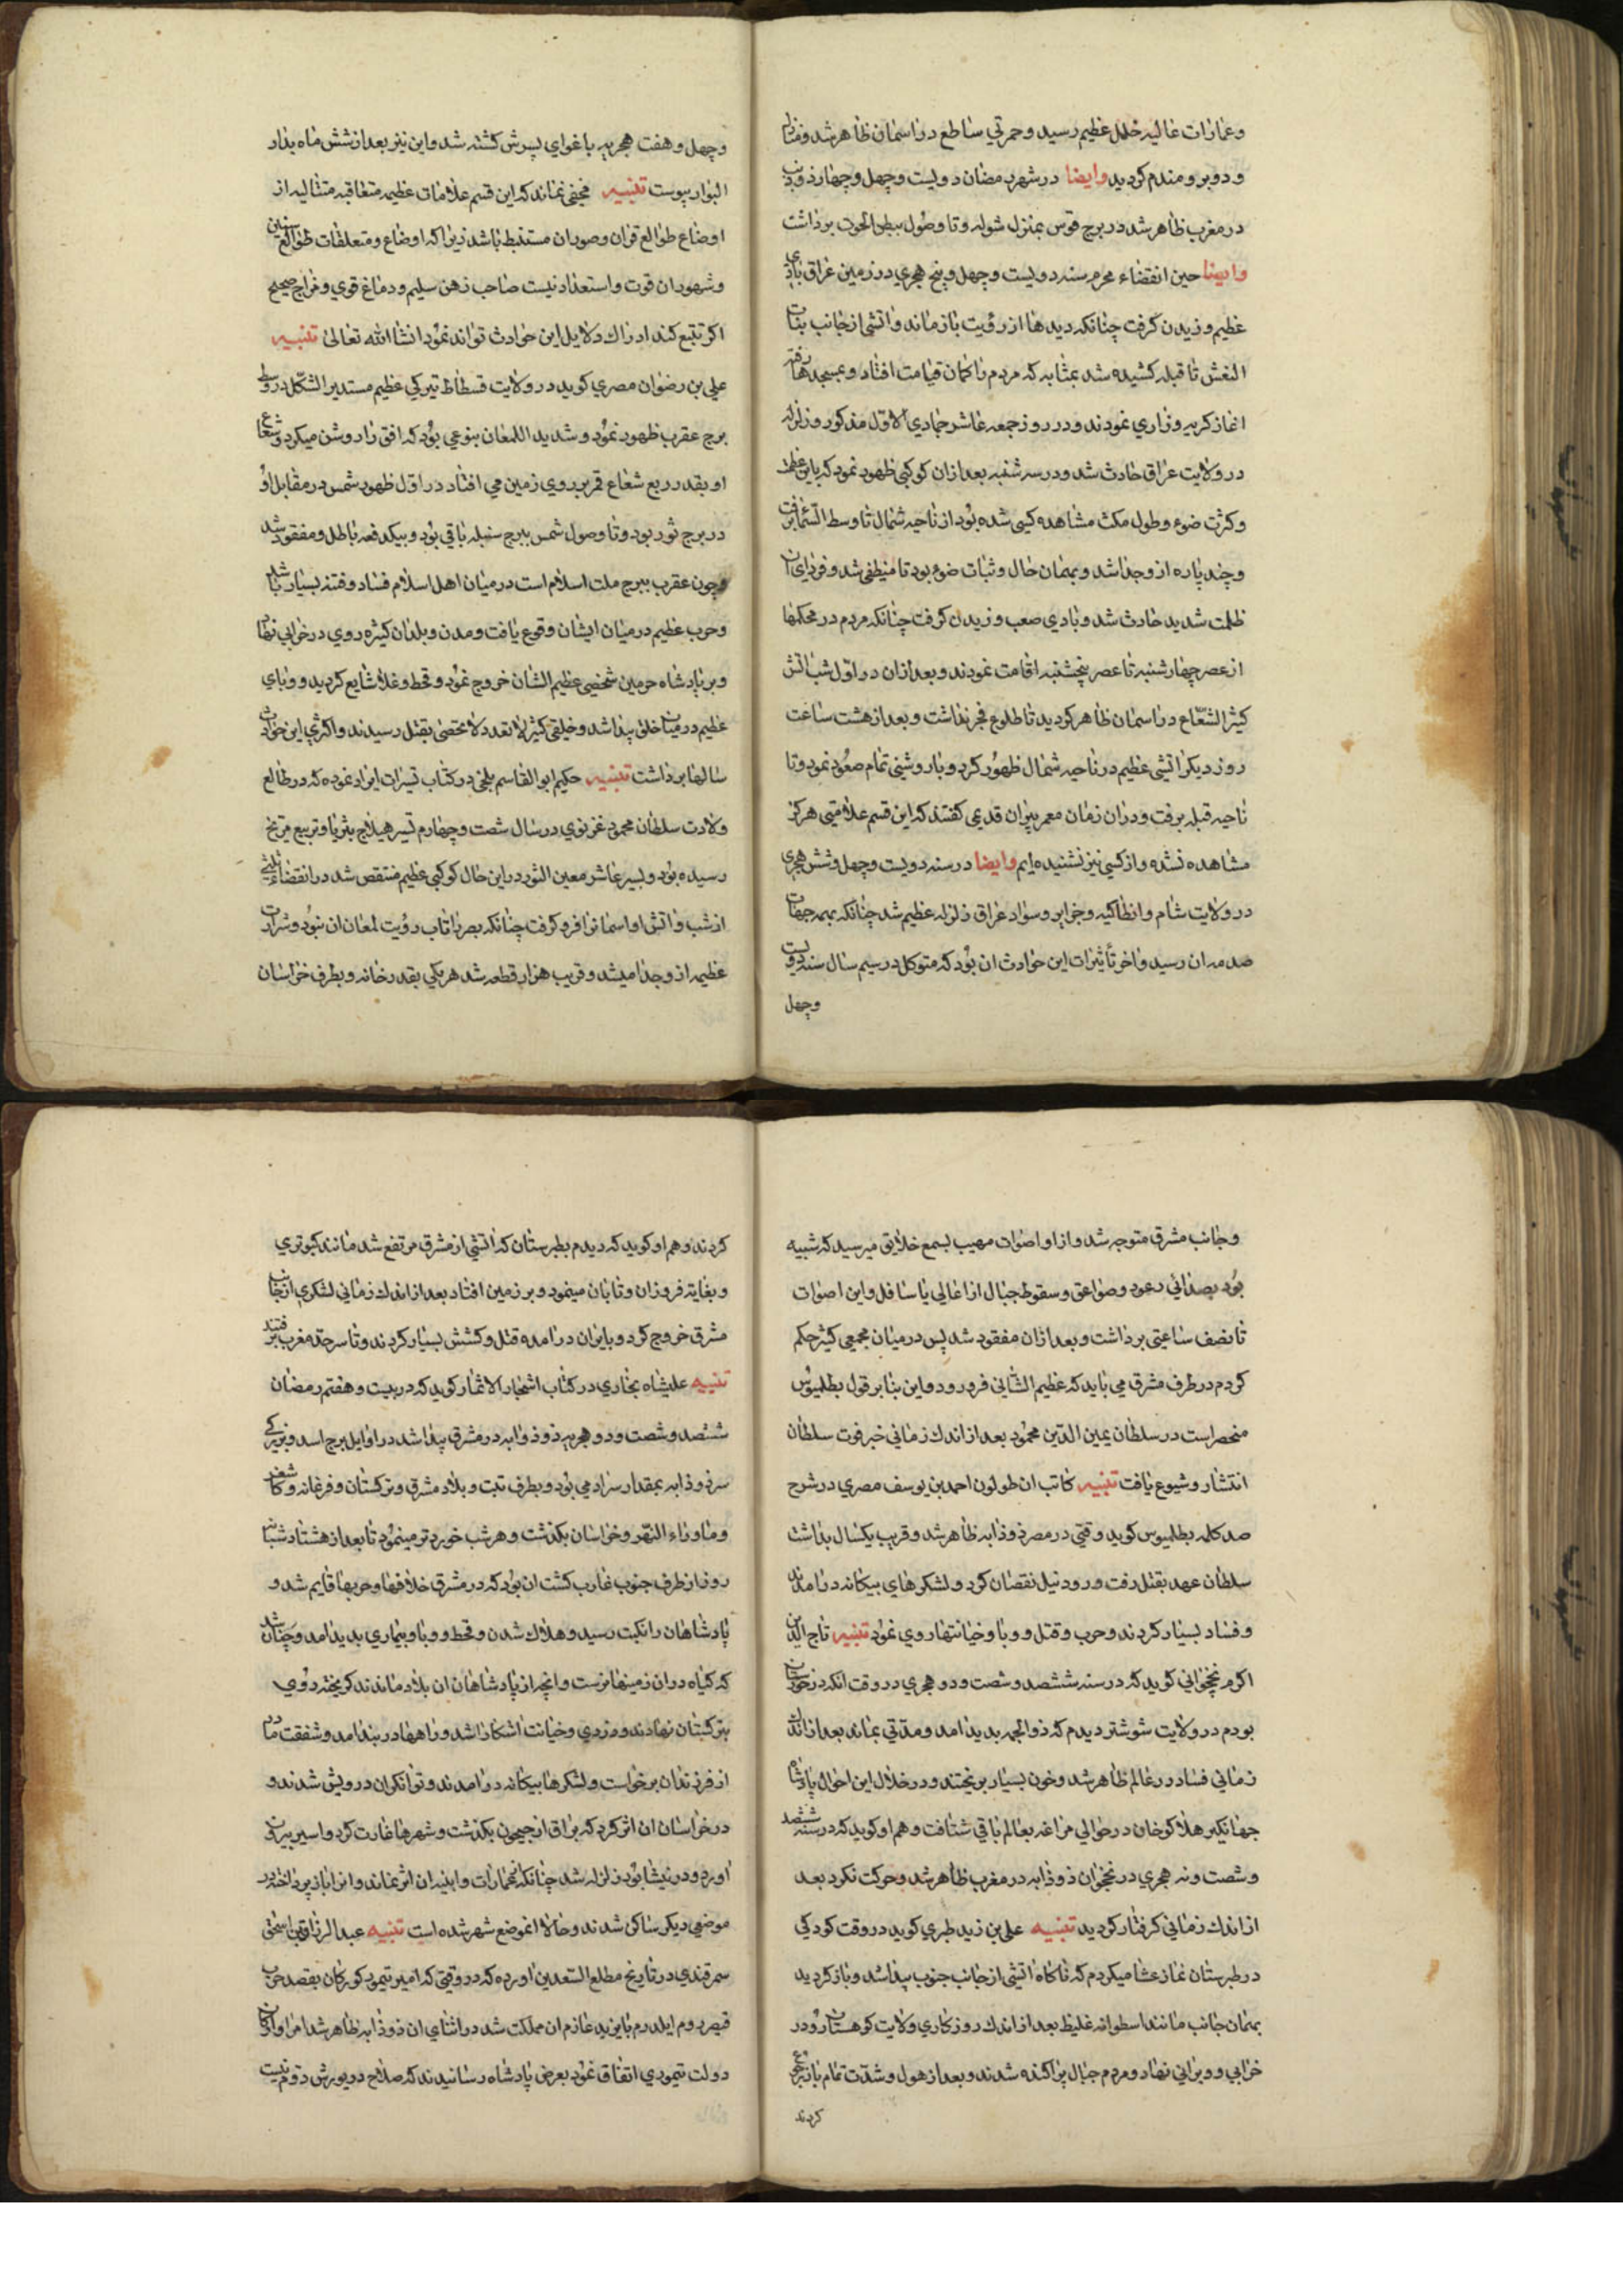 وعمارات عاليه خلل عظيم رسيد وحمرتي ساطع در اسمان ظاهر شد ومنازل
ودوبر ومندم كرديد وايضا در شهر رمضان دويست وچهل وچهار ذو ذنب
در مغرب ظاهر شد در برج قوس بمنزل شوله وتا وصول ببطن الحوت برداشت
وايضا حين انقضاء محرم سنه دويست وچهل وپنج هجري در زمين عراق بادي
عظيم وزيدن كرفت چنانكه ديدها از رؤيت بازماند واتشي از جانب بنات
النعش تا قبله كشيده شد بمثابه كه مردم را كمان قيامت افتاد وبمسجدها رفته
اغاز كريه وزاري نمودند ودر روز جمعه عاشر جمادي الاول مذكور زلزله
در ولايت عراق حادث شد ودر سه شنبه بعد ازان كوكبي ظهور نمود كه باين عظمت
وكثرت ضوء وطول مكث مشاهده كسي نشده بود از ناحيه شمال تا وسط السما برفت
وچند پاره ازو جدا شد وبهمان حال وثبات ضوء بود تا منطفي شد وفرداي ان
ظلمت شديد حادث شد وبادي صعب وزيدن كرفت چنانكه مردم در محكمها
از عصر چهارشنبه تا عصر پنجشنبه اقامت نمودند وبعد ازان در اول شب اتش
كثير الشعاع در اسمان ظاهر كرديد تا طلوع فجر بداشت وبعد از هشت ساعت
روز ديكر اتشي عظيم در ناحيه شمال ظهور كرد وبا روشني تمام صعود نمود وتا
ناحيه قبله برفت ودران زمان معمر پيران قديمي كفتند كه اين قسم علامتي هركز
مشاهده نشده واز كسي نيز نشنيده ايم وايضا در سنه دويست وچهل وشش هجري
در ولايت شام وانطاكيه وجزاير وسواد عراق زلزله عظيم شد چنانكه بهمه جهات
صدمه ان رسيد واخر تأثيرات اين حوادث ان بود كه متوكل در سيم سال سنه دويست
وچهل
وچهل وهفت هجريه باغواي پسرش كشته شد واين نيز بعد از شش ماه بدار
البوار پيوست تنبيه مخفي نماند كه اين قسم علامات عظيمه متعاقبه متتاليه از
اوضاع طوالع قران وصور ان مستنبط باشد زيرا كه اوضاع ومتعلقات طوالع سنين
وشهور ان قوت واستعداد نيست صاحب ذهن سليم ودماغ قوي ومزاج صحيح
اكر تتبع كند ادراك دلايل اين حوادث تواند نمود انشا الله تعالي تنبيه
علي بن رضوان مصري كويد در ولايت قسطاط نيركي عظيم مستدير الشكل در وسط
برج عقرب ظهور نمود وشديد اللمعان بنوعي بود كه افق را روشن ميكرد وشعاع
او بقدر ربع شعاع قمر بر روي زمين مي افتاد در اول ظهور شمس در مقابل او
در برج ثور بود وتا وصول شمس ببرج سنبله باقي بود وبيكدفعه باطل ومفقود شد
وچون عقرب ببرج ملت اسلام است در ميان اهل اسلام فساد وفتنه بسيار باشد
وحرب عظيم در ميان ايشان وقوع يافت ومدن وبلدان كثيره روي در خرابي نهاد
وبر پادشاه حرمين شخصي عظيم الشان خروج نمود وقحط وغلا شايع كرديد ووباي
عظيم در ميان خلق پيدا شد وخلقي كثير لا تعد ولا تحصي بقتل رسيدند واكثري اين حوادث
سالها برداشت تنبيه حكيم ابو القاسم بلخي در كتاب تسيرات ايراد نموده كه در طالع
ولادت سلطان محمود غزنوي در سال شصت وچهارم تسير هيلاج بثريا وتربيع مريخ
رسيده بود وتسير عاشر معين الثور دراين حال كوكبي عظيم منتقص شد در انقضاء ثلثي
از شب واتش او اسمانرا فرو كرفت چنانكه بصر را تاب رؤيت لمعان ان نبود وشرارت
عظيمه ازو جدا ميشد وقريب هزار قطعه شد هر يكي بقدر خانه وبطرف خراسان
وجانب مشرق متوجه شد وازاو اصوات مهيب بسمع خلايق ميرسيد كه شبيه
بود بصدائي رعود وصواعق وسقوط جبال از اعالي با سافل واين اصوات
تا نصف ساعتي برداشت وبعد ازان مفقود شد پس در ميان مجمعي كثير حكم
كردم در طرف مشرق مي بايد كه عظيم الشاني فرو رود واين بنا بر قول بطلميوس
منحصر است در سلطان يمين الدين محمود بعد از اندك زماني خبر فوت سلطان
انتشار وشيوع يافت تنبيه كاتب ان طولون احمد بن يوسف مصري در شرح
صد كلمه بطلميوس كويد وقتي در مصر ذوذابه ظاهر شد وقريب يكسال بداشت
سلطان عهد بقتل رفت ورود نيل نقصان كرد ولشكرهاي بيكانه درامدند
وفساد بسيار كردند وحرب وقتل ووبا وخيانتها روي نمود تنبيه تاج الدين
اكرم نخجواني كويد كه در سنه ششصد وشصت ودو هجري در وقت انكه در خوزستان
بودم در ولايت شوشتر ديدم كه ذو الجمه بديد امد ومدتي بماند بعد از اندك
زماني فساد در عالم ظاهر شد وخون بسيار بريختند ودر خلال اين احوال پادشاه
جهانكير هلاكوخان در حوالي مراغه بعالم باقي شتافت وهم او كويد كه در سنه ششصد
وشصت ونه هجري در نخجوان ذوذابه در مغرب ظاهر شد وحركت نكرد بعد
از اندك زماني كرفتار كرديد تنبيه علي بن زيد طبري كويد در وقت كودكي
در طبرستان نماز عشا ميكردم كه ناكاه اتشي از جانب جنوب پيدا شد وباز كرديد
بهمان جانب مانند اسطوانه غليظ بعد از اندك روزكاري ولايت كوهستان رو در
خرابي وويراني نهاد ومردم جبال پراكنده شدند وبعد از هول وشدت تمام باز رجوع
كردند
كردند وهم او كويد كه ديدم بطبرستان كه اتشي از مشرق مرتفع شد مانند كبوتري
وبغايت فروزان وتابان مينمود وبر زمين افتاد بعد از اندك زماني لشكري از جانب
مشرق خروج كرد وبايران درامده قتل وكشش بسيار كردند وتا سرحد مغرب برفتند
تنبيه عليشاه بخاري در كتاب اشجار الاثمار كويد كه در بيست وهفتم رمضان
ششصد وشصت ودو هجريه ذوذوابه در مشرق پيدا شد در اوايل برج اسد وبزركي
سر ذوذابه بمقدار سراد مي بود وبطرف تبت وبلاد مشرق وتركستان وفرغانه وكاشغر
وماوراء النهر وخراسان بكذشت وهر شب خوردتر مينمود تا بعد از هشتاد شبانه
روز از طرف جنوب غارب كشت ان بود كه در مشرق خلافها وحربها قايم شد و
پادشاهان را نكبت رسيد وهلاك شدن وقحط ووبا وبيماري بديد امد وچنان شد
كه كياه دران زمينها نرست وانچه از پادشاهان ان بلاد ماندند كريخته روي
بتركستان نهادند ودزدي وخيانت اشكارا شد وراهها در بند امد وشفقت مادر
از فرزندان برخواست ولشكرها بيكانه درامدند وتوانكران درويش شدند و
در خراسان ان اثر كرد كه براق از جيحون بكذشت وشهرها غارت كرد واسير بيرون
اورد ودر نيشابور زلزله شد چنانكه عمارات وابنيه ان اثر نماند وانرا باز پرداخته در
موضعي ديكر ساكن شدند وحالا انموضع شهر شده است تنبيه عبد الرزاق بن اسحق
سمرقندي در تاريخ مطلع السعدين اورده كه در وقتي كه امير تيمور كوركان بقصد حرب
قيصر روم ايلدرم بايزيد عازم ان مملكت شد در اثناي ان ذوذابه ظاهر شد امرا واركان
دولت تيموري اتفاق نموده بعرض پادشاه رسانيدند كه صلاح در يورش روم نيست